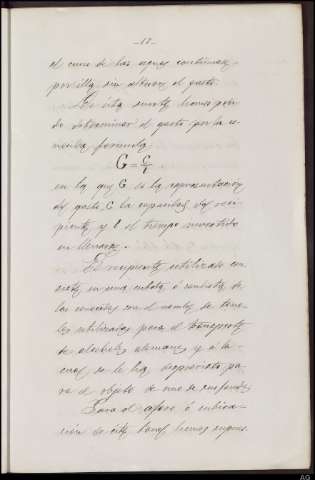 —17—
el curso de las aguas continuas
por ella sin alterar el gasto.
De esta suerte hemos podi-
do determinar el gasto por la sen-
cilla formula
G = C/t
en la que G es la representación
del gasto, C la capacidad del reci-
piente y t el tiempo invertido
en llenarse.
El recipiente utilizado con-
siste en una cubeta ó
las conocidas con el nombre de tone-
les utilizadas para el transporte
de alcohol aleman y á la
cual se le ha preparado pa-
ra el objeto
Para el aforo ó cubica-
ción de este tonel hemos